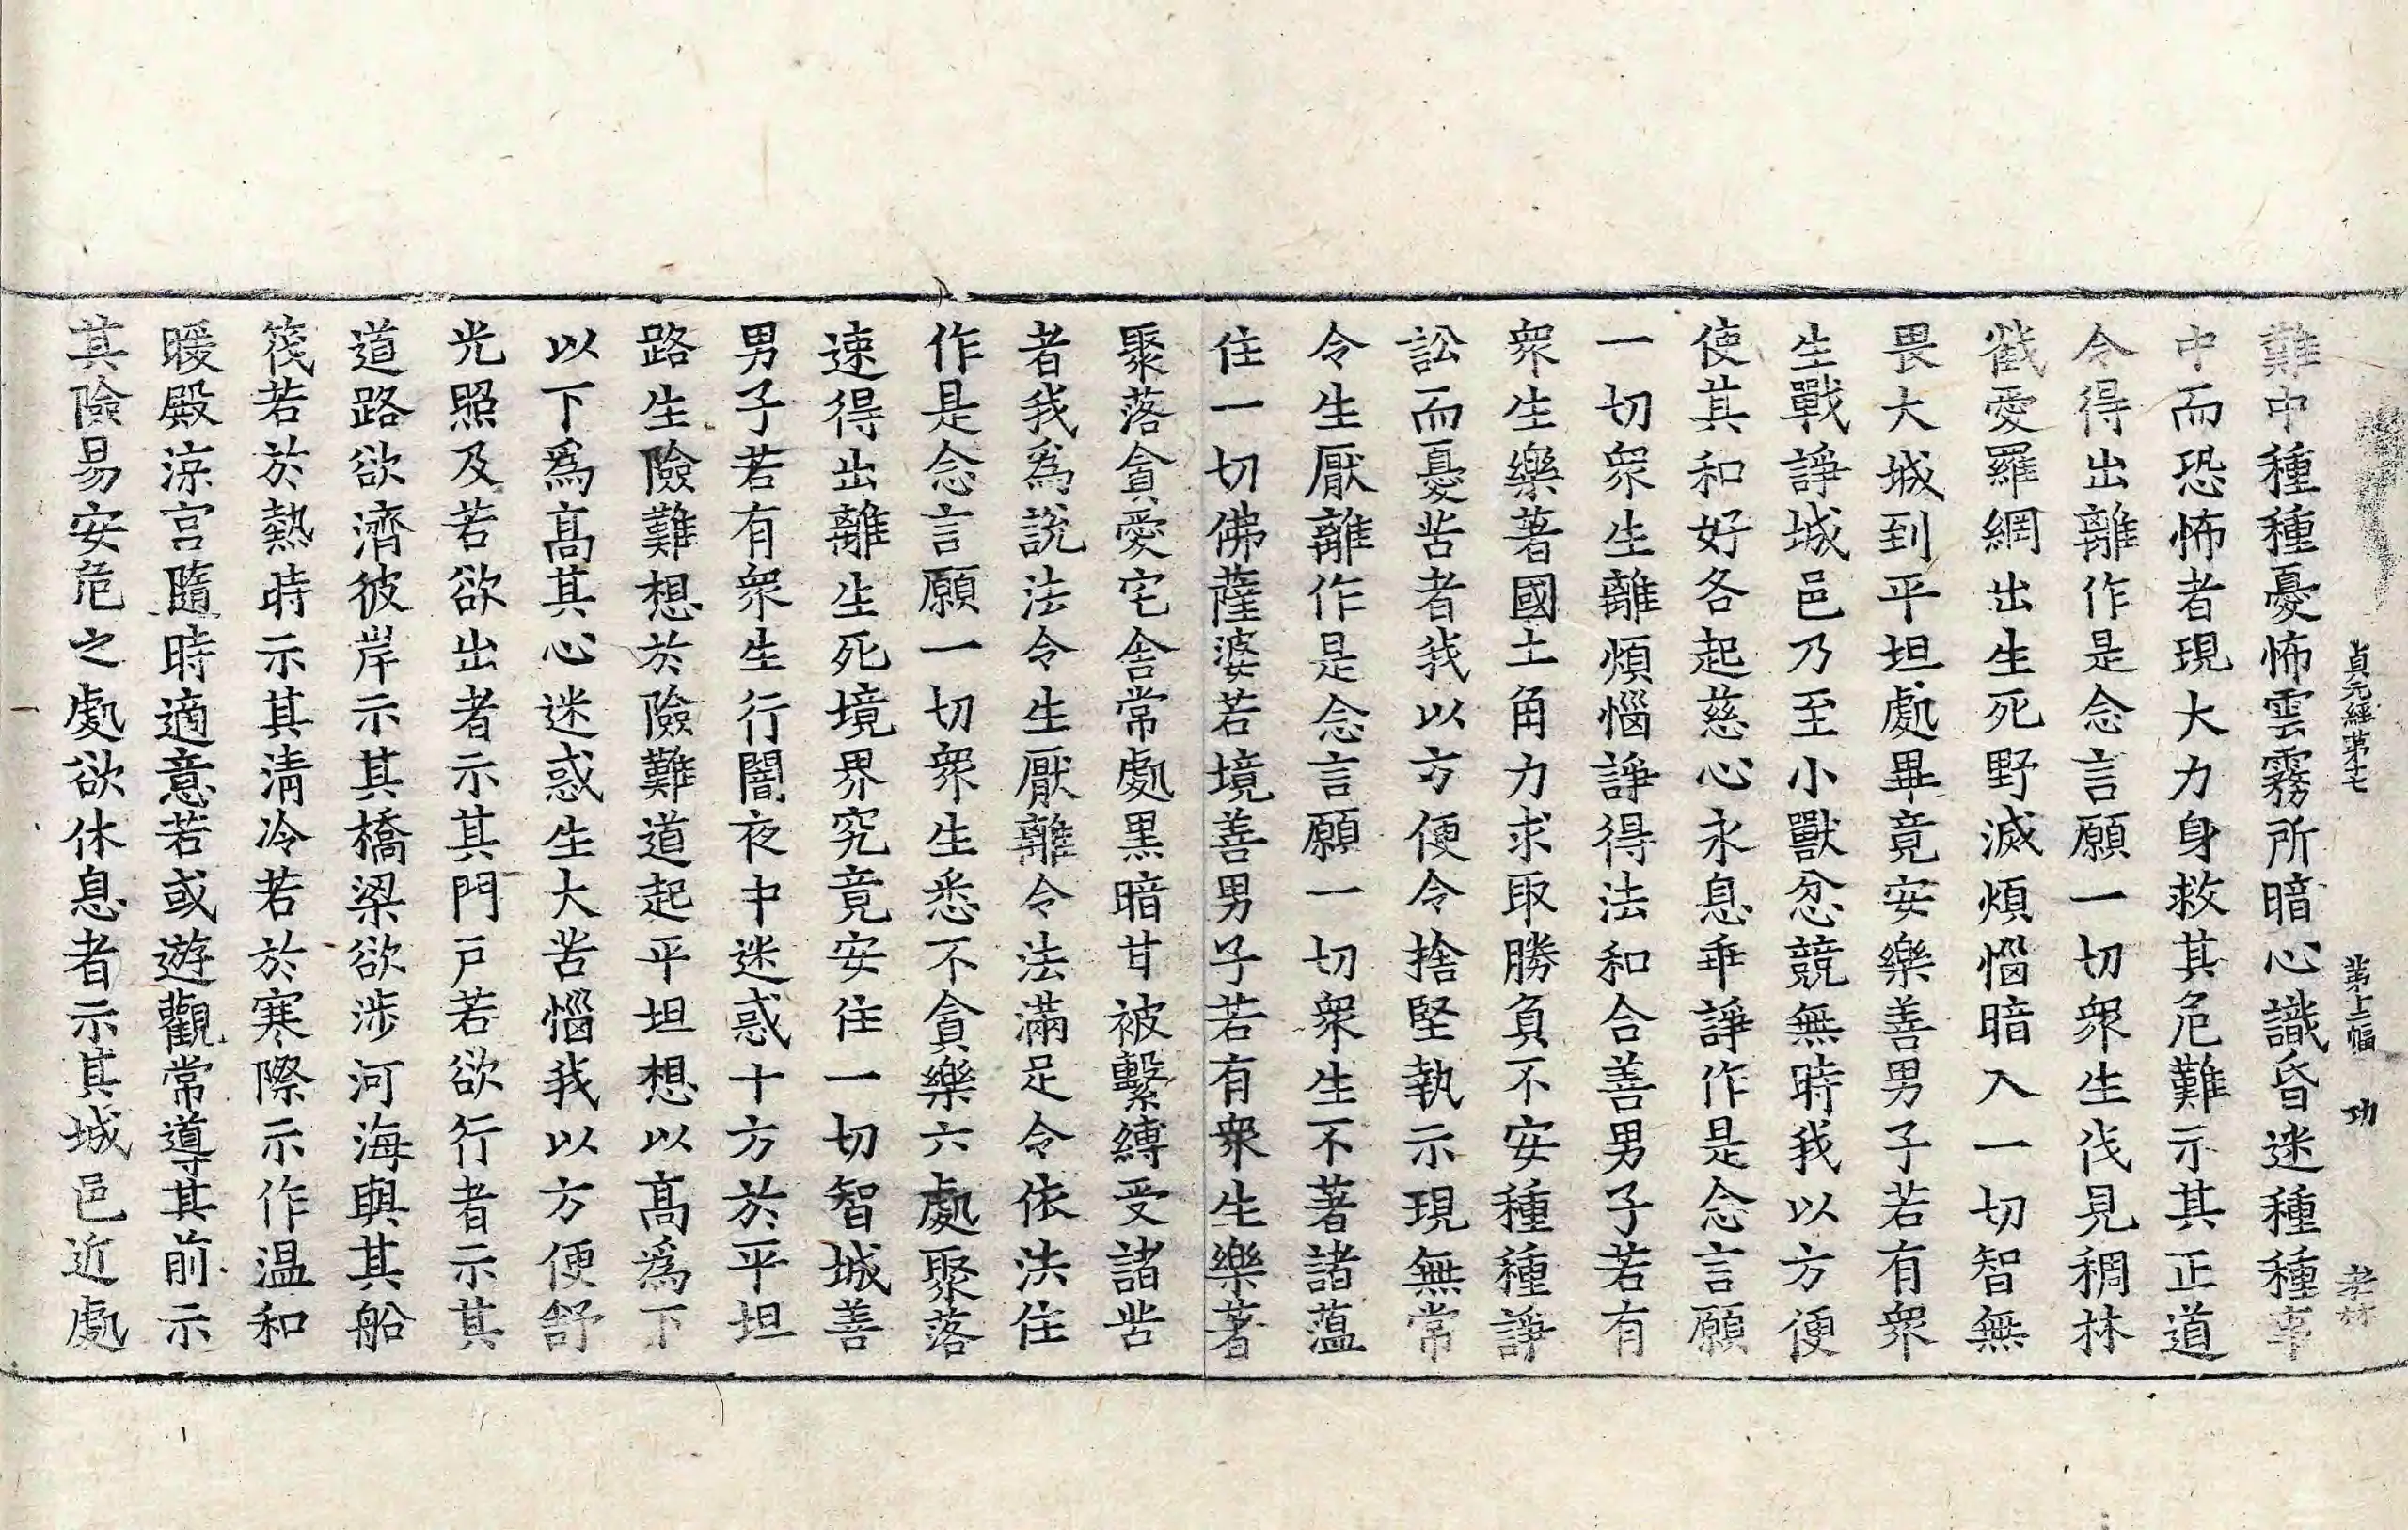 貞元經第十七 第十二幅 功 孝林
難中種種憂怖雲霧所暗心識昏迷種種事
中而恐怖者現大力身救其危難示其正道
令得出離作是念言願一切衆生伐見稠林
截愛羅網出生死野滅煩惱暗入一切智無
畏大城到平坦處畢竟安樂善男子若有衆
生戰諍城邑乃至小獸忿競無時我以方便
使其和好各起慈心永息乖諍作是念言願
一切衆生離煩惱諍得法和合善男子若有
衆生樂著國土角力求取勝負不安種種諍
訟而憂苦者我以方便令捨堅執示現無常
令生厭離作是念言願一切衆生不著諸薀
住一切佛薩婆若境善男子若有衆生樂著
聚落貪愛宅舍常處黑暗甘被繫縛受諸苦
者我爲說法令生厭離令法滿足令依法住
作是念言願一切衆生悉不貪樂六處聚落
速得出離生死境界究竟安住一切智城善
男子若有衆生行闇夜中迷惑十方於平坦
路生險難想於險難道起平坦想以髙爲下
以下爲髙其心迷惑生大苦惱我以方便舒
光照及若欲出者示其門戶若欲行者示其
道路欲濟彼岸示其橋梁欲涉河海與其船
筏若於熱時示其淸冷若於寒際示作温和
暖殿涼宮隨時適意若或遊觀常導其前示
其險易安危之處欲休息者示其城邑近處